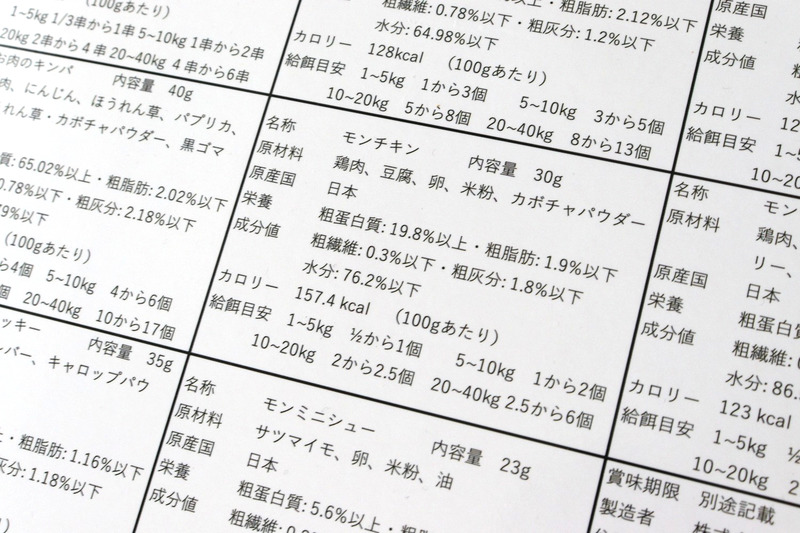 (100gあたり)
1~5kg 1/3串から1串 5~10kg 1串から2串
20kg 2串から4串 20~40kg 4串から6串
お肉のキンパ 内容量 40g
肉、にんじん、ほうれん草、パプリカ、
れん草・カボチャパウダー、黒ゴマ
質: 65.02%以上・粗脂肪: 2.02%以下
0.78%以下・粗灰分: 2.18%以下
79%以下
(100gあたり)
ら4個 5~10kg 4から6個
個 20~40kg 10から17個
ッキー 内容量 35g
ンパー、キャロップパウ
・粗脂肪: 1.16%以下
灰分: 1.18%以下
以上・粗脂肪: 2.12%以下
粗繊維: 0.78%以下・粗灰分: 1.2%以下
水分: 64.98%以下
カロリー 128kcal (100gあたり)
給餌目安 1~5kg 1から3個 5~10kg 3から5個
10~20kg 5から8個 20~40kg 8から13個
名称 モンチキン 内容量 30g
原材料 鶏肉、豆腐、卵、米粉、カボチャパウダー
原産国 日本
栄養 粗蛋白質: 19.8%以上・粗脂肪: 1.9%以下
成分値 粗繊維: 0.3%以下・粗灰分: 1.8%以下
水分: 76.2%以下
カロリー 157.4 kcal (100gあたり)
給餌目安 1~5kg ½から1個 5~10kg 1から2個
10~20kg 2から2.5個 20~40kg 2.5から6個
名称 モンミニシュー 内容量 23g
原材料 サツマイモ、卵、米粉、油
原産国 日本
栄養 粗蛋白質: 5.6%以上・粗脂
成分値 粗繊維:
原産国
栄養
成分値
カロリー
給餌目安 1~5
10~20
名称 モン
原材料 鶏肉、
リー、
原産国 日本
栄養 粗蛋白質
成分値 粗繊維:
水分: 86.
カロリー 123 kcal
給餌目安 1~5kg
10~20kg
賞味期限 別途記載
製造者